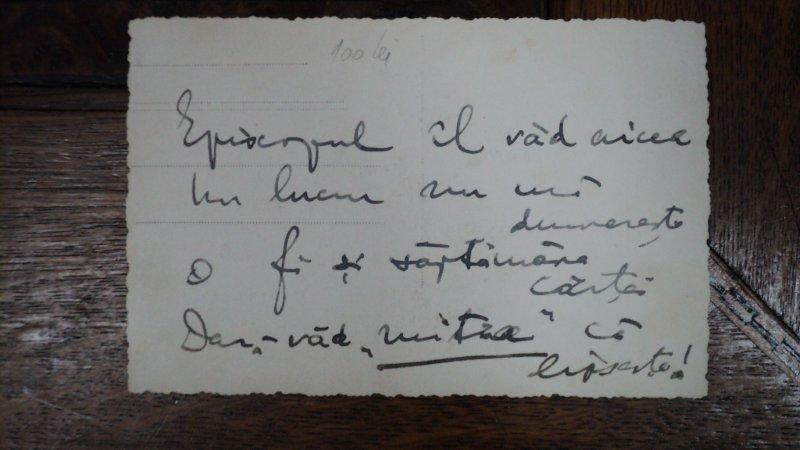 100 lei
Episcopul îl văd aicea
Un lucru nu mă
dumerește
O fi și săptămâna
cărții
Dar, văd „mitra" că
lipsește!